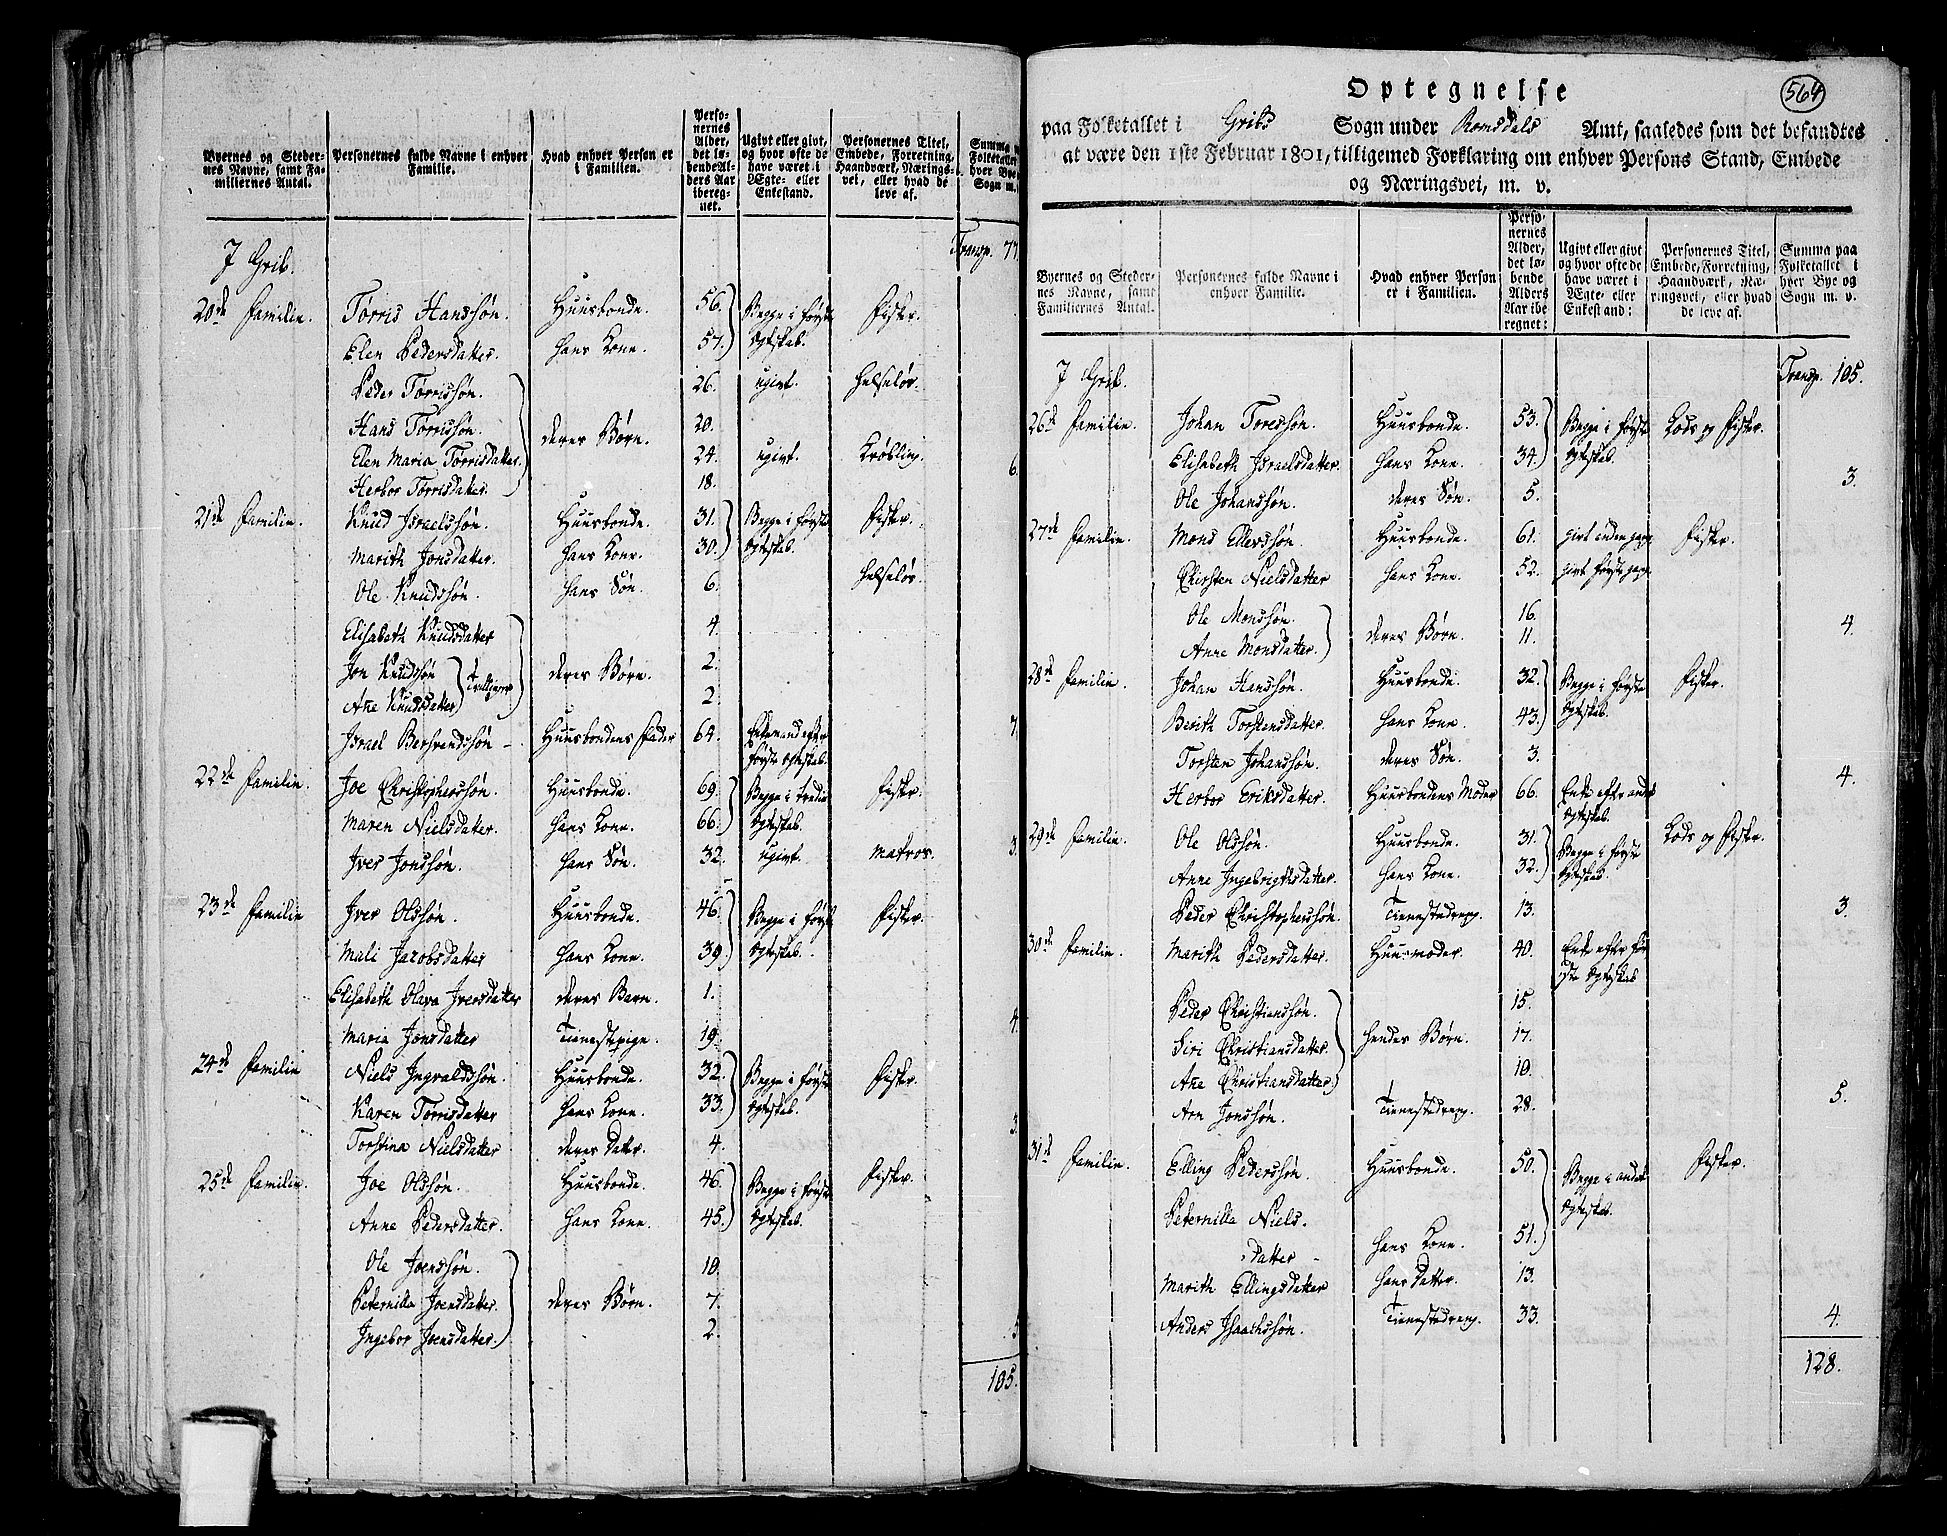 Byernes og Steder-
nes Navne, samt Fa-
miliernes Antal.
Personernes fulde Navne i enhver
Familie.
Hvad enhver Person er
i Familien.
Perso-
nernes
Alder,
det lø-
bende Al-
ders Aar
ibereg-
net.
Ugivt eller givt,
og hvor ofte de
have været i
Ægte- eller
Enkestand.
Personernes Titel,
Embede, Forretning,
Haandværk, Nærings-
vei, eller hvad de
leve af.
Summa
Folketallet
hver Bye
Sogn m.
J Grib. Transp. 77
20de Familie. Tørris Hanssøn. Huusbonde. 56. Begge i første Fisker.
Elen Pedersdatter. Hans Kone. 57. Egteskab.
Peder Tørrissøn. 26. ugivt. Helseløs.
Hans Tørrissøn. deres Børn. 20.
Elen Maria Tørrisdatter. 24. ugivt. Krøbling.
Herbor Tørrisdatter. 18. 6.
21de Familie. Knud Israelssøn. Huusbonde. 31. Begge i første Fisker.
Marith Jonsdatter. Hans Kone. 30. Egteskab.
Ole Knudssøn. Hans Søn. 6. Helseløs.
Elisabeth Knudsdatter 4.
Jon Knudssøn Tvillinger deres Børn. 2.
Ane Knudsdatter 2.
Israel Bersvendssøn - Huusbondens Fader 64. Enkemand efter 7.
første Egteskab.
22de Familie. Joe Christophersøn. Huusbonde. 69. Begge i tredie Fisker.
Maren Nielsdatter. Hans Kone. 66. Egteskab.
Iver Jonssøn. Hans Søn. 32. ugivt. Matros. 3.
23de Familie Iver Olssøn. Huusbonde. 46. Begge i første Fisker.
Mali Jacobsdatter Hans Kone. 39. Egteskab.
Elisabeth Olava Iversdatter deres Barn. 1.
Maria Jonsdatter Tienestepige. 19. 4.
24de Familie Niels Ingvaldssøn. Huusbonde. 32. Begge i første Fisker.
Karen Tørrisdatter Hans Kone. 33. Egteskab.
Torstina Nielsdatter deres Datter. 4. 3.
25de Familie. Joe Olssøn. Huusbonde. 46. Begge i første Fisker.
Anne Pedersdatter. Hans Kone. 45. Egteskab.
Ole Joenssøn. 10.
Peternilla Joensdatter. deres Børn. 7.
Ingebor Joensdatter. 2. 5
105.
564
Optegnelse
paa Folketallet i Gribs Sogn under Romsdals Amt, saaledes som det befandtes
at være den 1ste Februar 1801, tilligemed Forklaring om enhver Persons Stand, Embede
og Næringsvei, m. v.
Byernes og Steder-
nes Navne, samt
Familiernes Antal.
Personernes fulde Navne i
enhver Familie.
Hvad enhver Person
er i Familien.
Perso-
nernes
Alder,
det lø-
bende
Alders
Aar ibe
regnet:
Ugivt eller givt
og hvor ofte de
have været i
Ægte- eller
Enkestand:
Personernes Titel,
Embede, Forretning,
Haandværk, Næ-
ringsvei, eller hvad
de leve af.
Summa paa
Folketallet i
hver Bye og
Sogn m. v.
J Grib. Transp. 105.
26de Familie. Johan Toressøn. Huusbonde. 53. Begge i første Lods og Fisker.
Elisabeth Israelsdatter. Hans Kone. 34. Egteskab.
Ole Johanssøn. deres Søn. 5. 3.
27de Familie. Mons Ellerssøn. Huusbonde. 61. givt anden gang Fisker.
Chirsten Nielsdatter Hans Kone. 52. givt første gang
Ole Monssøn. 16.
Anne Monsdatter. deres Børn. 11. 4.
28de Familie. Johan Hanssøn. Huusbonde. 32. Begge i første Fisker.
Berith Torstensdatter. Hans Kone. 43. Egteskab.
Torsten Johanssøn. deres Søn. 3.
Herbor Eriksdatter. Huusbondens Moder 66. Enke efter andet 4.
Egteskab.
29de Familie. Ole Olssøn. Huusbonde. 31. Begge i første Lods og Fisker.
Anne Ingebrigthsdatter. Hans Kone. 32. Egteskab.
Peder Christopherssøn. Tienestedreng. 13. 3.
30de Familie. Marith Pedersdatter. Huusmoder. 40. Enke efter før
ste Egteskab
Peder Christianssøn. 15.
Siri Christiansdatter. hendes Børn. 17.
Ane Christiansdatter. 10.
Arn Jonssøn. Tienestedreng. 28. 5.
31de Familie. Elling Pederssøn. Huusbonde. 50. Begge i andet Fisker.
Peternilla Niels- Egteskab.
datter - Hans Kone. 51.
Marith Ellingsdatter Hans Datter. 13.
Anders Isaachssøn. Tienestedreng. 33. 4.
128.